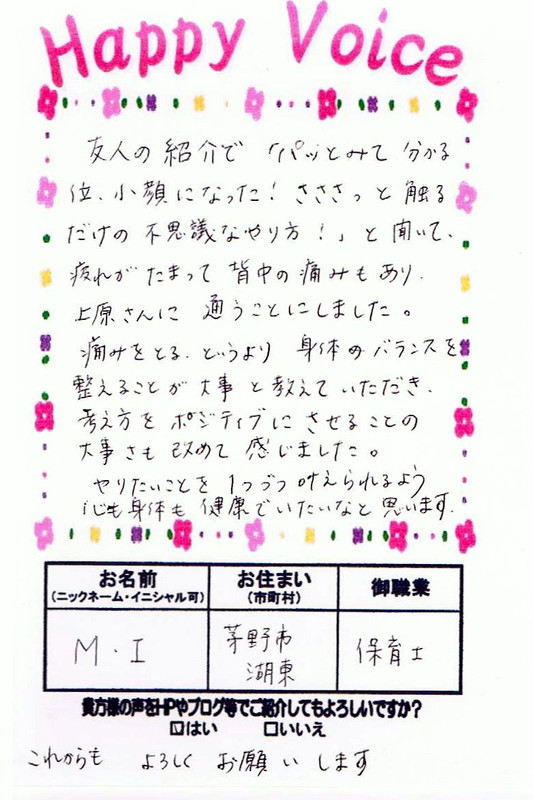 Happy Voice
友人の紹介で「パッとみて分かる
位、小顔になった！さささっと触る
だけの不思議なやり方！」と聞いて、
疲れがたまって背中の痛みもあり、
上原さんに通うことにしました。
痛みをとる、というより身体のバランスを
整えることが大事と教えていただき、
考え方をポジティブにさせることの
大事さも改めて感じました。
やりたいことを1つづつ叶えられるよう
心も身体も健康でいたいなと思います。
お名前
(ニックネーム・イニシャル可)
お住まい
(市町村)
御職業
M・I
茅野市
湖東
保育士
貴方様の声をHPやブログ等でご紹介してもよろしいですか？
☑はい □いいえ
これからも よろしく お願いします